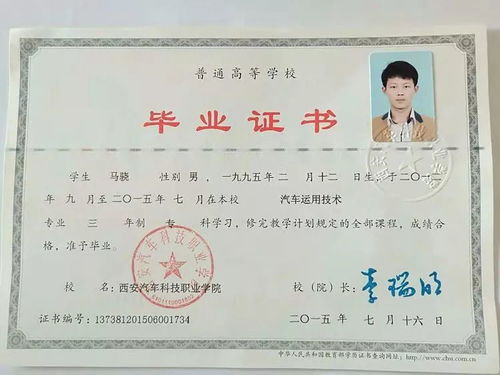 普通高等学校
毕业证书
学生 马骁 性别 男，一九九五年 二 月 十二 日生，于二〇一二
年 九 月至二〇一五年 七 月在本校 汽车运用技术
专业 三 年制 专 科学习，修完教学计划规定的全部课程，成绩合
格，准予毕业。
校 名：西安汽车科技职业学院 校（院）长：李瑞明
证书编号：137381201506001734 二〇一五年 七 月 十六 日
中华人民共和国教育部学历证书查询网址：http://www.chsi.com.cn